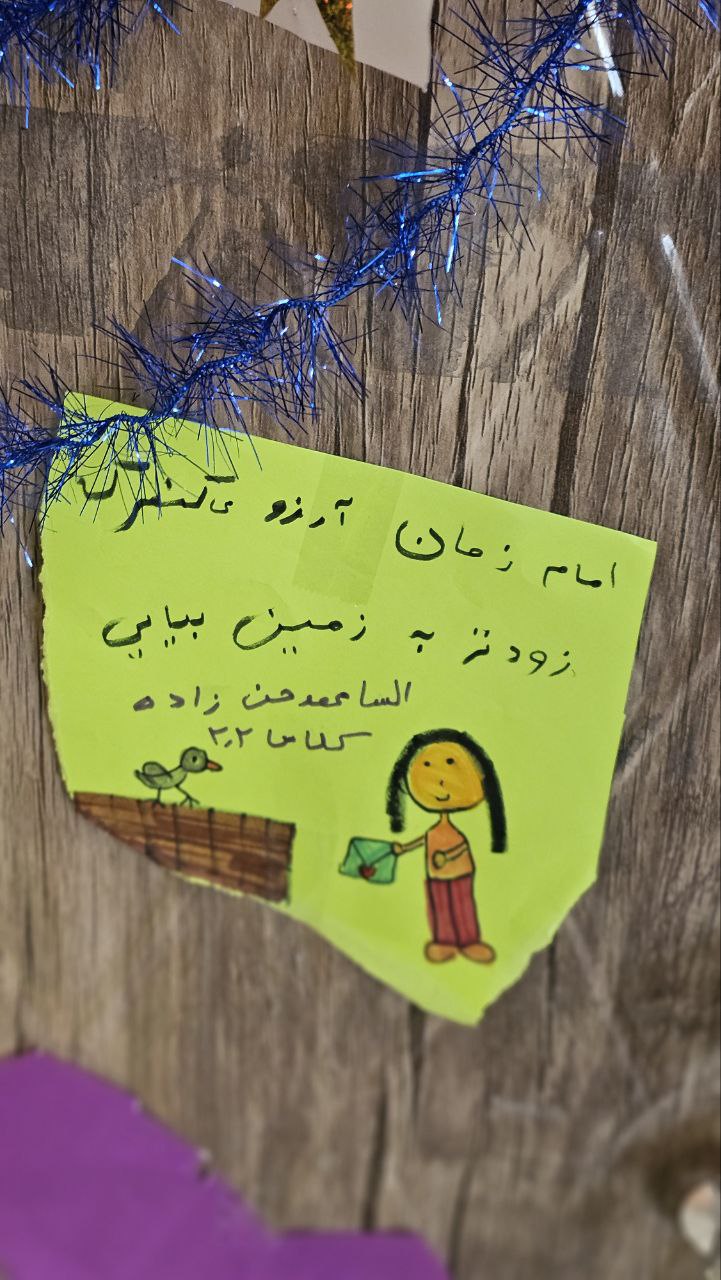 امام زمان آرزو میکنم
زودتر به زمین بیایی
السا محمدحسن زاده
کلاس ۲٫۲